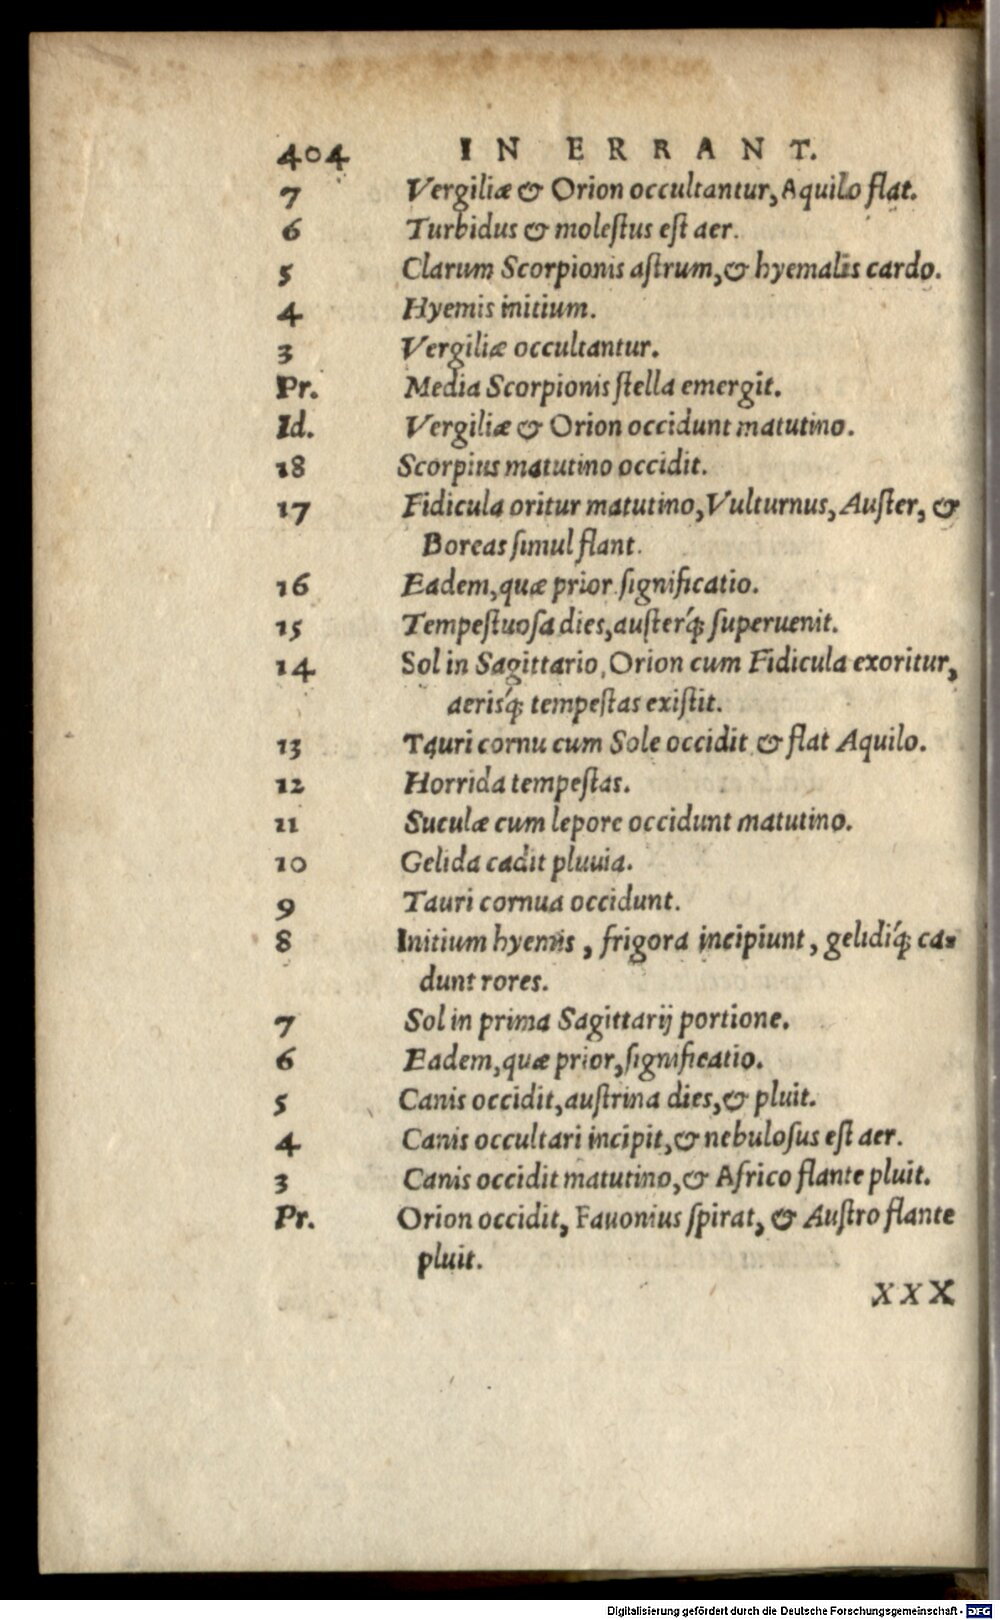 404 IN ERRANT.
7 Vergiliæ & Orion occultantur, Aquilo flat.
6 Turbidus & molestus est aer.
5 Clarum Scorpionis astrum, & hyemalis cardo.
4 Hyemis initium.
3 Vergiliæ occultantur.
Pr. Media Scorpionis stella emergit.
Id. Vergiliæ & Orion occidunt matutino.
18 Scorpius matutino occidit.
17 Fidicula oritur matutino, Vulturnus, Auster, &
Boreas simul flant.
16 Eadem, quæ prior significatio.
15 Tempestuosa dies, austerq́; superuenit.
14 Sol in Sagittario, Orion cum Fidicula exoritur,
aerisq́; tempestas existit.
13 Tauri cornu cum Sole occidit & flat Aquilo.
12 Horrida tempestas.
11 Suculæ cum lepore occidunt matutino.
10 Gelida cadit pluuia.
9 Tauri cornua occidunt.
8 Initium hyemis, frigora incipiunt, gelidiq́; ca-
dunt rores.
7 Sol in prima Sagittarij portione.
6 Eadem, quæ prior, significatio.
5 Canis occidit, austrina dies, & pluit.
4 Canis occultari incipit, & nebulosus est aer.
3 Canis occidit matutino, & Africo flante pluit.
Pr. Orion occidit, Fauonius spirat, & Austro flante
pluit.
XXX
Digitalisierung gefördert durch die Deutsche Forschungsgemeinschaft - DFG